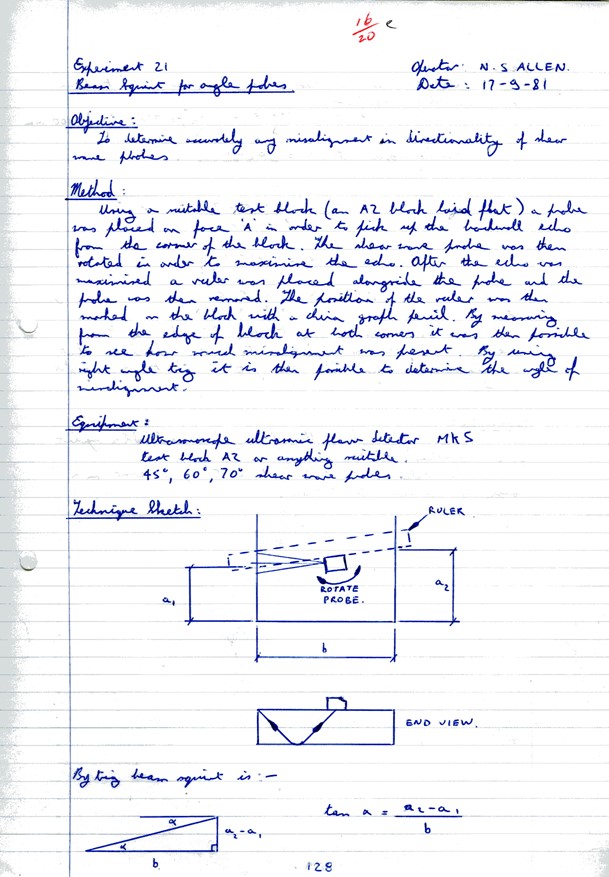 16/20 c
Experiment 21 Operator: N.S ALLEN.
Beam Squint for angle probes. Date: 17-9-81
Objective:
To determine accurately any misalignment in directionality of shear
wave probes
Method:
Using a suitable test block (an A2 block laid flat) a probe
was placed on face 'A' in order to pick up the backwall echo
from the corner of the block. The shear wave probe was then
rotated in order to maximise the echo. After the echo was
maximised a ruler was placed alongside the probe and the
probe was then removed. The position of the ruler was then
marked on the block with a china graph pencil. By measuring
from the edge of block at both corners it was then possible
to see how much misalignment was present. By using
right angle trig it is then possible to determine the angle of
misalignment.
Equipment:
Ultrasonoscope ultrasonic flaw detector MK5
test block A2 or anything suitable.
45°, 60°, 70° shear wave probes.
Technique Sketch:
RULER
a1
ROTATE
PROBE.
a2
b
END VIEW.
By trig beam squint is :-
α
α
a2-a1
b
tan α = a2-a1 / b
128